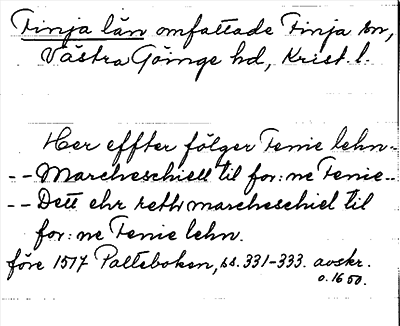 Finja län omfattade Finja sn,
Västra Göinge hd, Krist. l.
Her effter fölger Fenie lehn -
- - Marcheschiell til for:ne Fenie - -
- - Dett ehr rett marcheschiel til
for:ne Fenie lehn.
före 1517 Palteboken, ss. 331-333. avskr.
o. 1650.